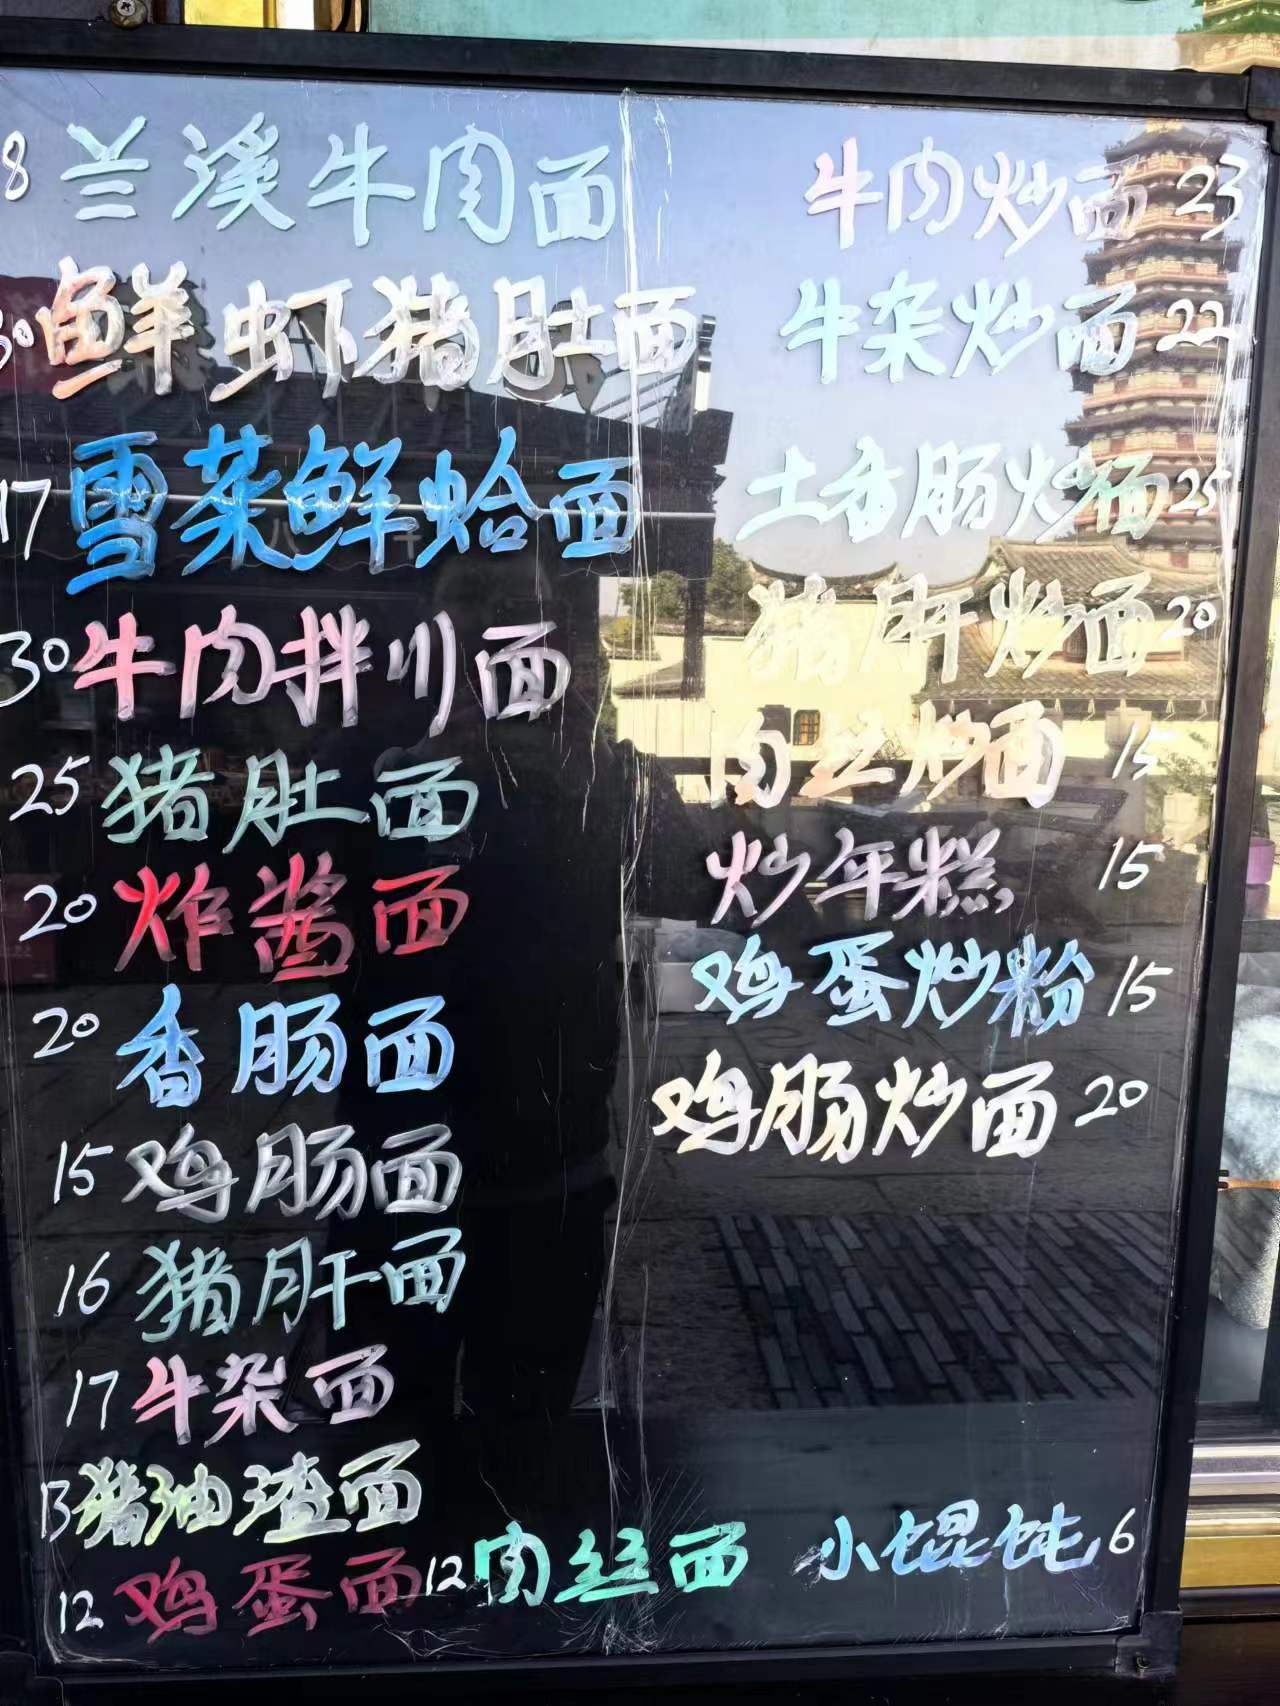 8 兰溪牛肉面
30 鲜虾猪肚面
17 雪菜鲜蛤面
30 牛肉拌川面
25 猪肚面
20 炸酱面
20 香肠面
15 鸡肠面
16 猪肝面
17 牛杂面
13 猪油渣面
12 鸡蛋面
12 肉丝面
牛肉炒面 23
牛杂炒面 22
土香肠炒面 25
猪肝炒面 20
肉丝炒面 15
炒年糕 15
鸡蛋炒粉 15
鸡肠炒面 20
小馄饨 6